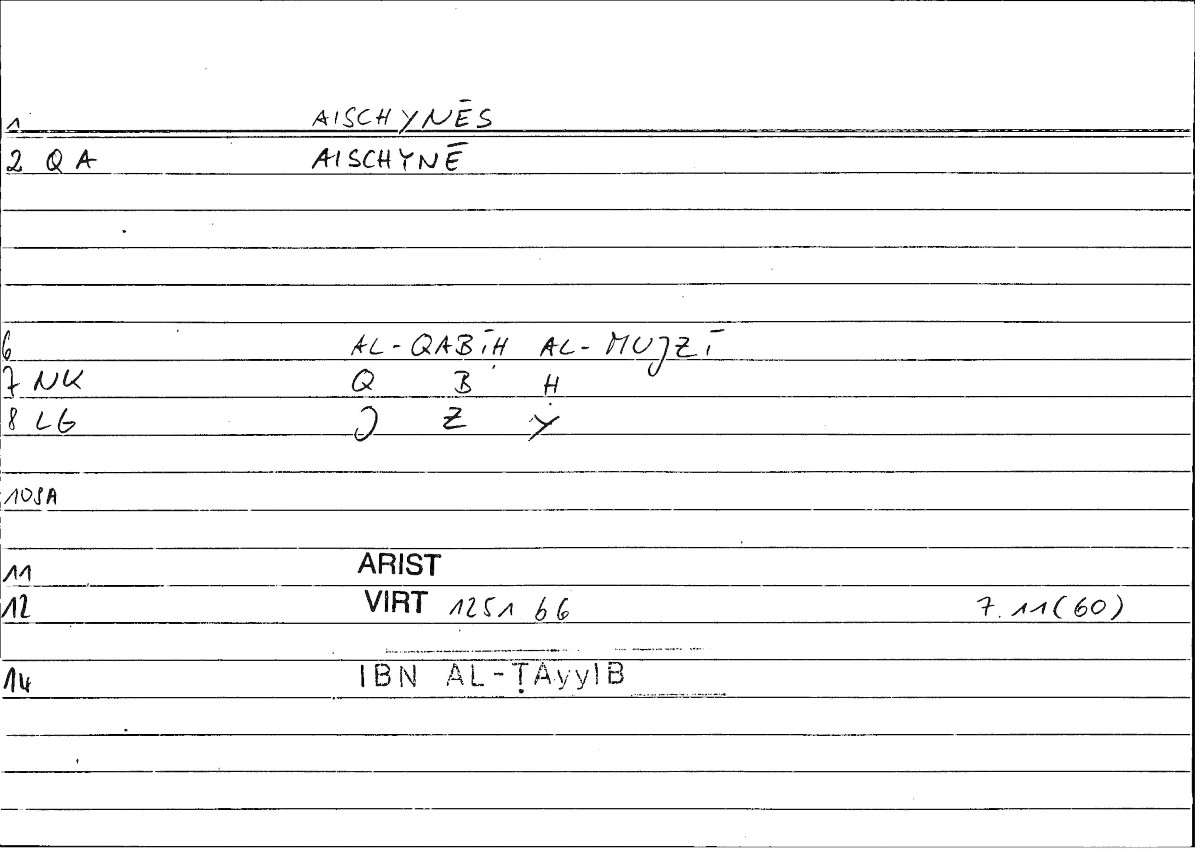 1 AISCHYNĒS
2 QA AISCHYNĒ
6 AL-QABĪḤ AL-MUJZĪ
7 NK Q B Ḥ
8 LG J Z Y
10SA
11 ARIST
12 VIRT 1251 b6 7.11(60)
14 IBN AL-ṬAyyIB